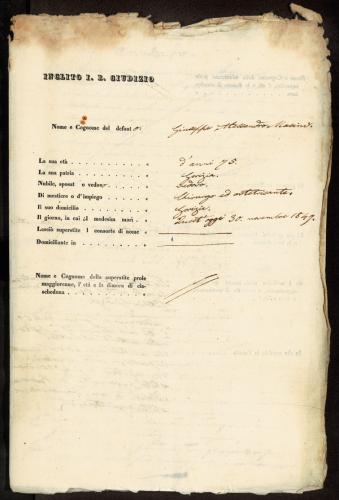 INCLITO I. R. GIUDIZIO
Nome e Cognome del defunto Giuseppe Alessandro
La sua età d'anni 75.
La sua patria Gorizia.
Nubile, sposat o vedov Vedovo.
Di mestiere o d'impiego Chirurgo ed
Il suo domicilio Gorizia.
Il giorno, in cui il medesim morì 30. novembre 1849.
Lasciò superstite l consorte di nome
Domiciliante in
Nome e Cognome della superstite prole
maggiorenne, l'età e la dimora di cia-
scheduna